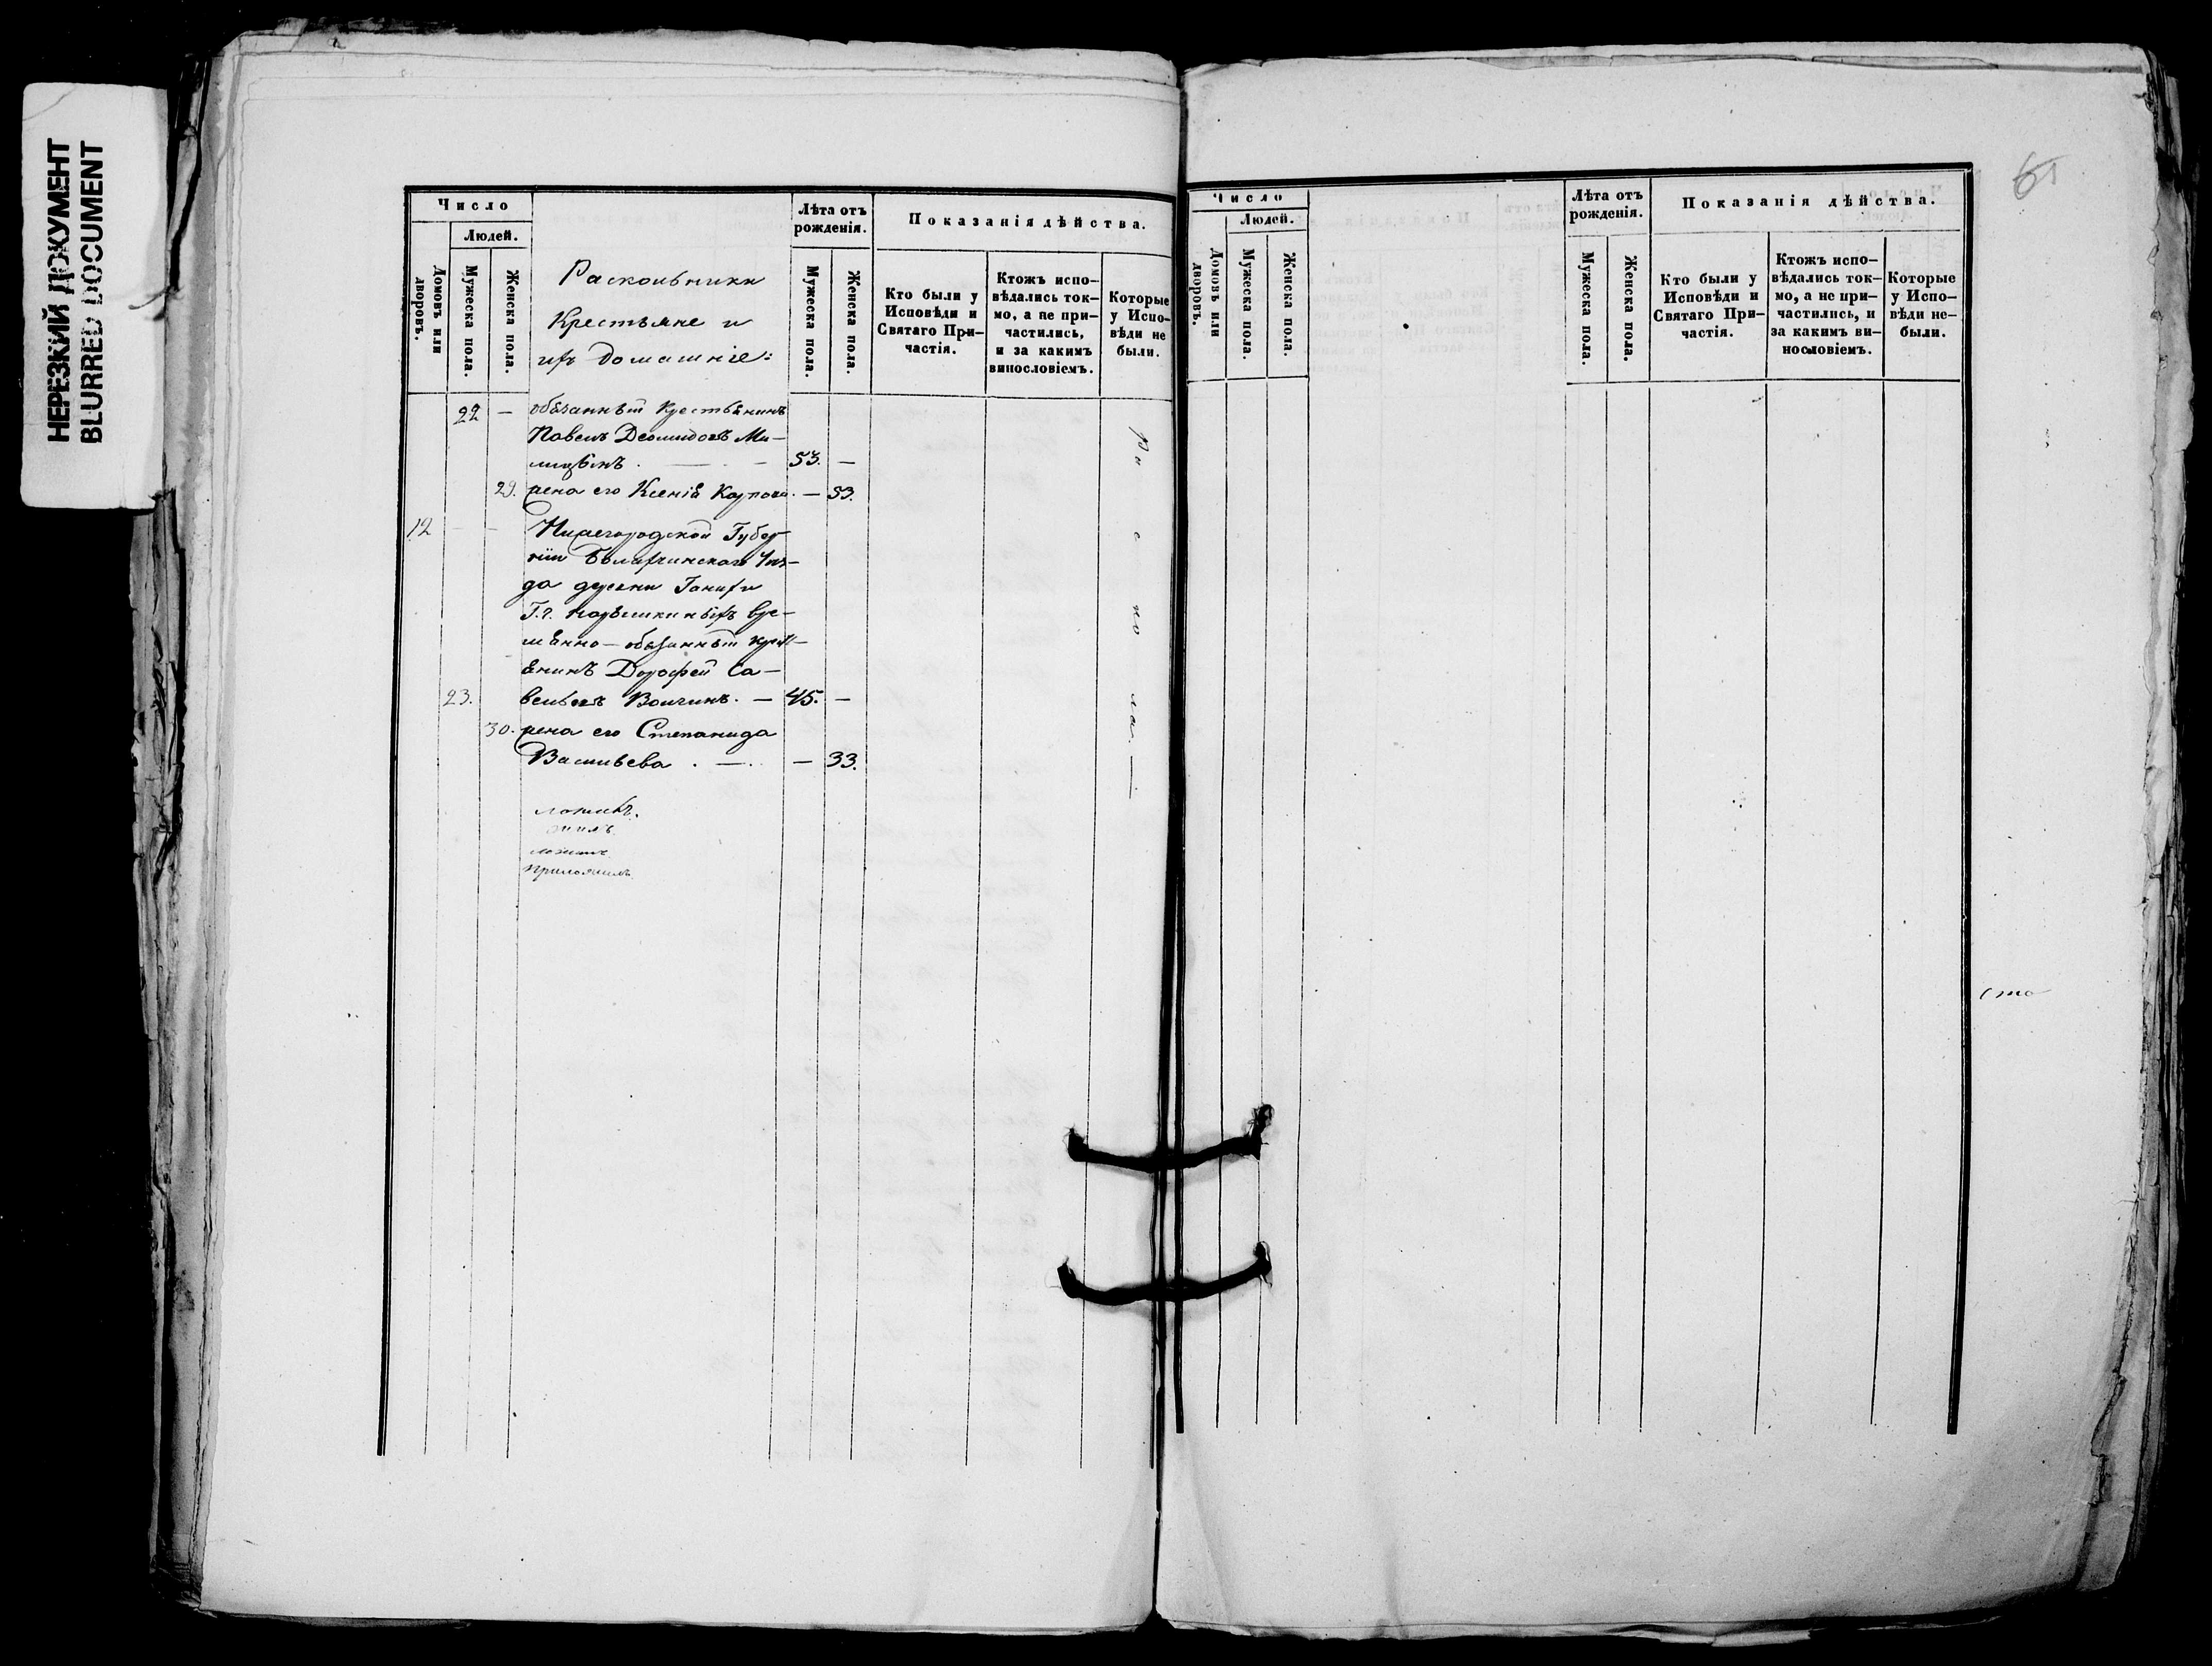 НЕРЕЗКИЙ ДОКУМЕНТ
BLURRED DOCUMENT
Число
Людей.
Домовъ или дворовъ.
Мужеска пола.
Женска пола.
Раскольники
Крестьяне и
ихъ домашніе:
Лѣта отъ
рожденія.
Мужеска пола.
Женска пола.
Показанія дѣйства.
Кто были у
Исповѣди и
Святаго При-
частія.
Ктожъ испо-
вѣдались ток-
мо, а не при-
частились,
и за какимъ
винословіемъ.
Которые
у Испо-
вѣди не
были.
22 — обязанный крестьянинъ
Павелъ Деомидовъ Ми-
53. —
29. жена его Ксенія Карпова. — 53.
12 — — Нижегородской Губер-
ніи Балахнинскаго Уѣз-
да деревни Ганихи
Г.г. Нарышкиныхъ вре-
менно-обязанный крест-
янинъ Дорофей Са-
23. вельевъ Волчинъ. — 45. —
30. жена его Степанида
Васильева . — . — 33.
Раскола. —
ложить.
приложилъ
Число
Людей.
Домовъ или дворовъ.
Мужеска пола.
Женска пола.
Лѣта отъ
рожденія.
Мужеска пола.
Женска пола.
Показанія дѣйства.
Кто были у
Исповѣди и
Святаго При-
частія.
Ктожъ испо-
вѣдались ток-
мо, а не при-
частились, и
за какимъ ви-
нословіемъ.
Которые
у Испо-
вѣди не-
были.
сто